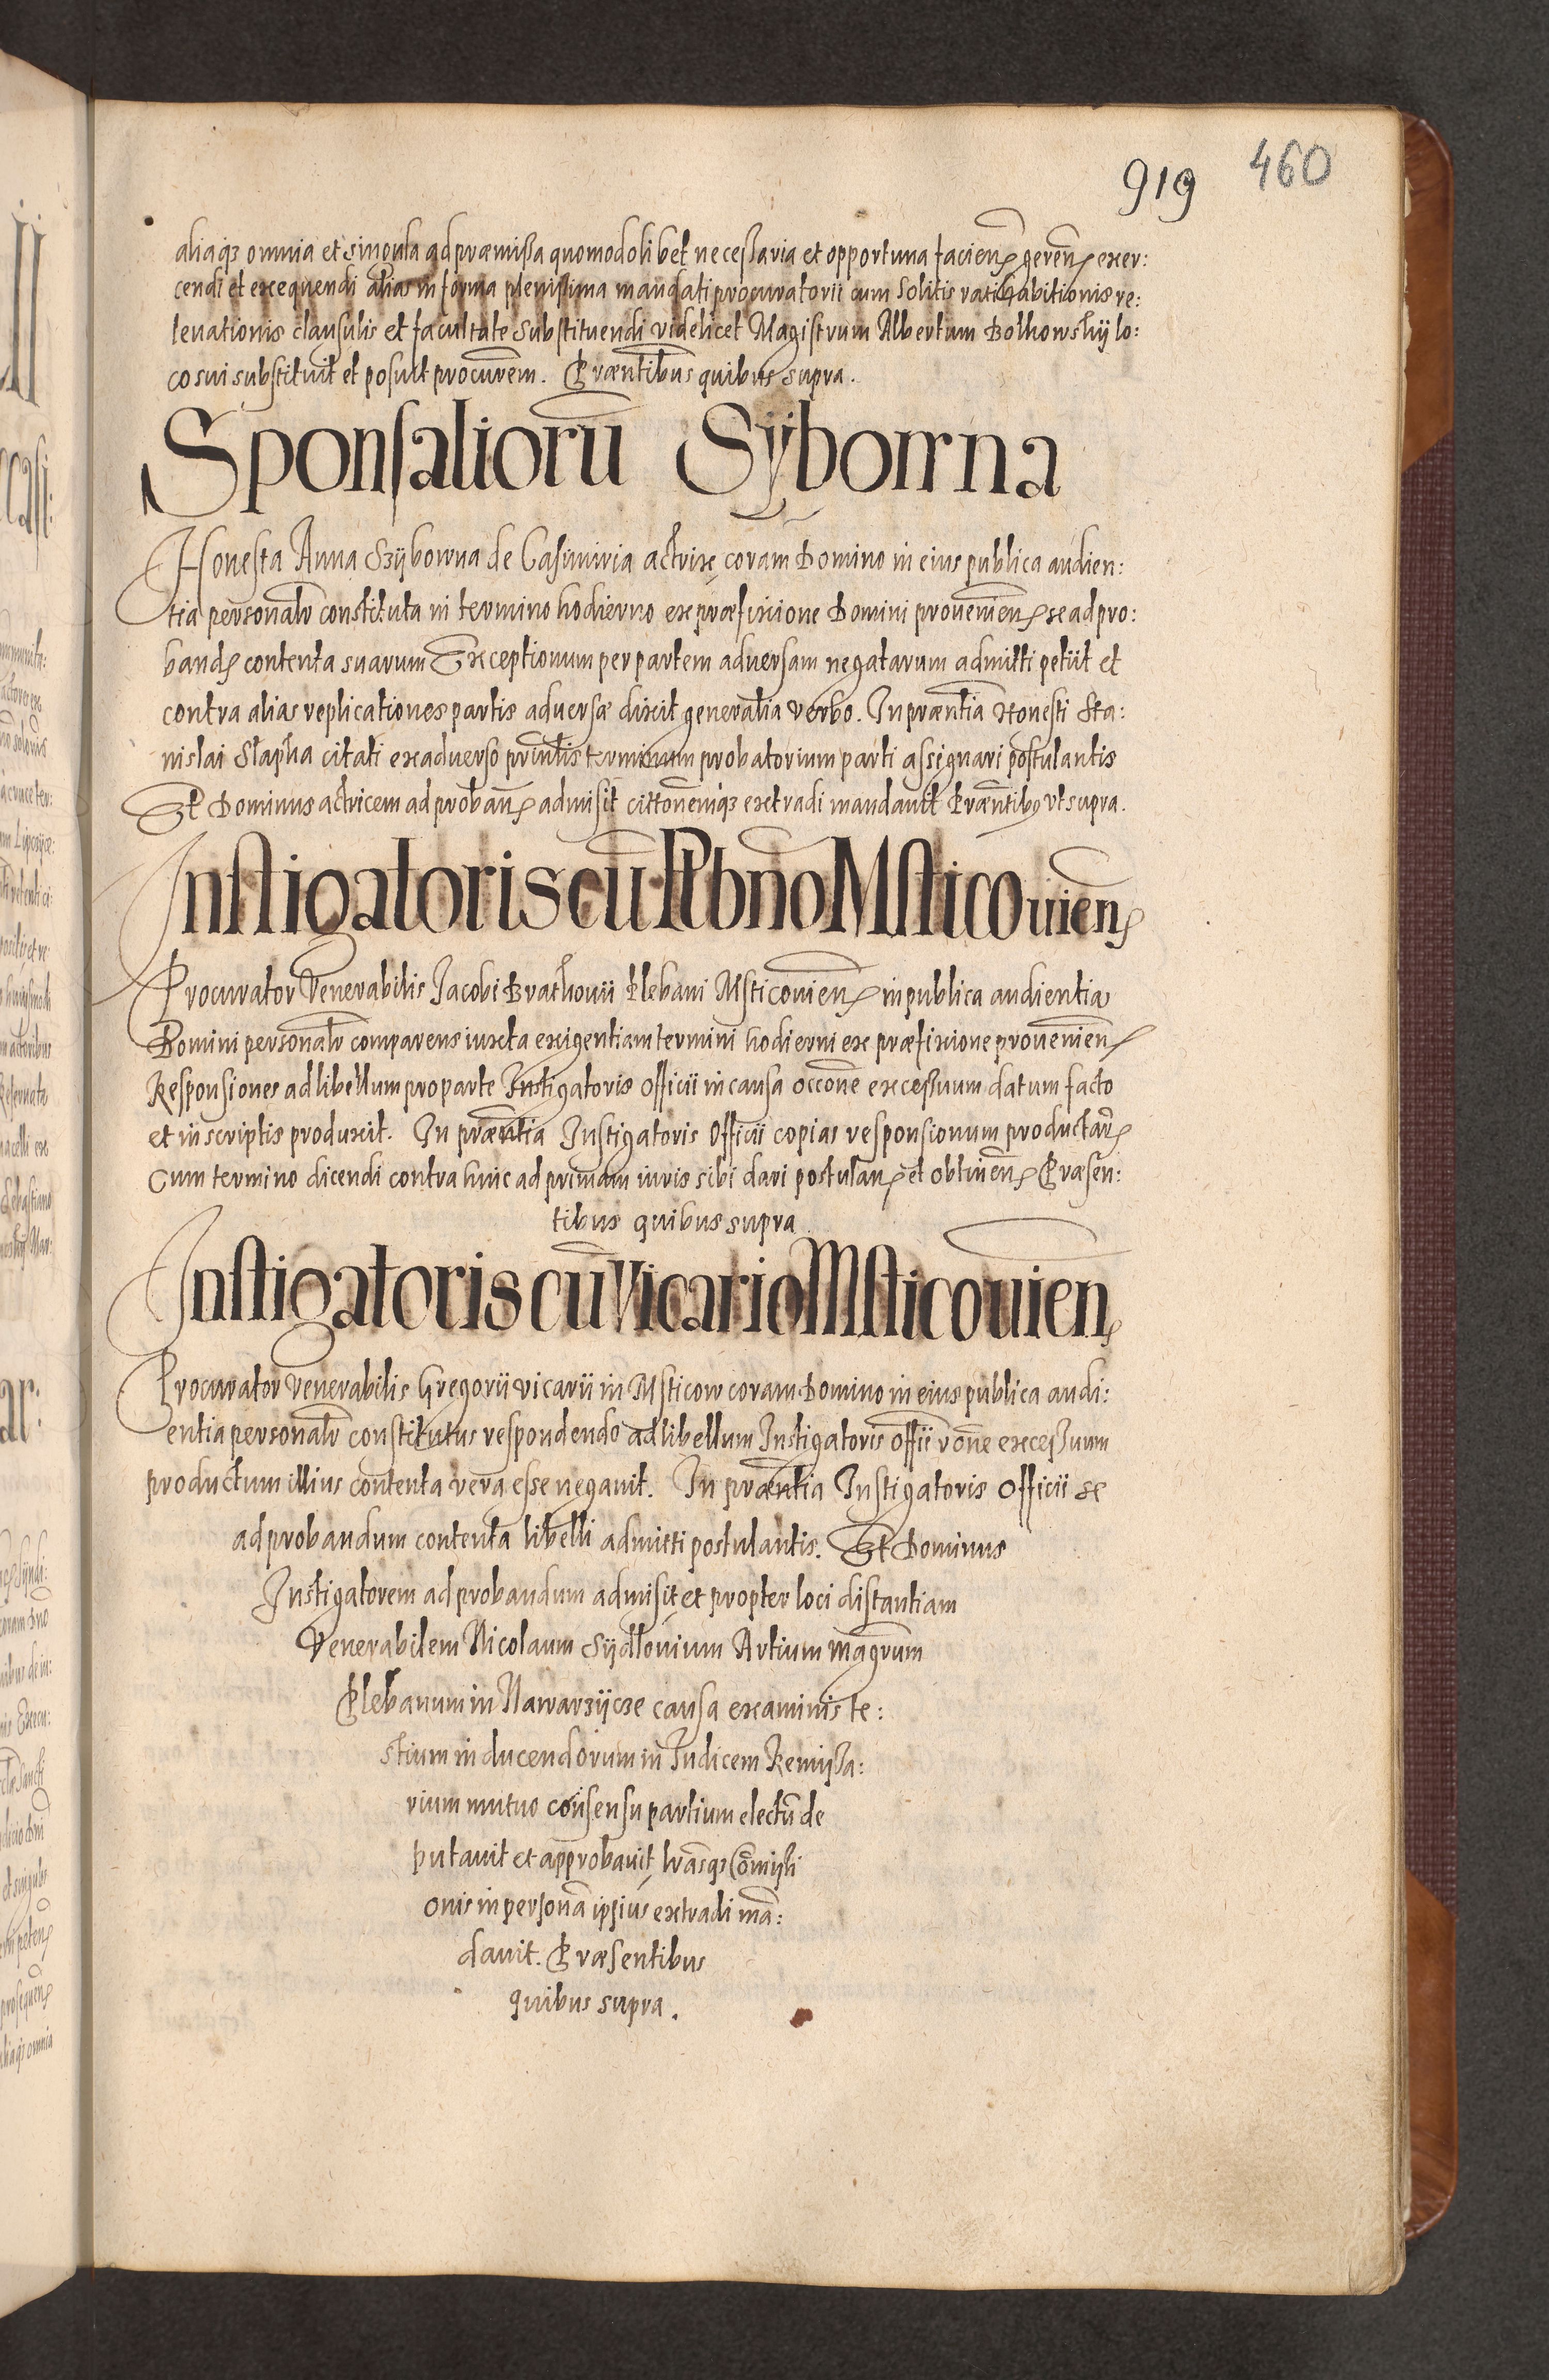 919 460
aliaqз omnia et singula ad præmissa quomodolibet necessaria et opportuna facienꝭ gerenꝭ exer:
cendi et exequendi alias in forma plenissima mandati procuratorii cum solitis ratihabitionis re:
levationis clausulis et facultate substituendi videlicet Magistrum Albertum Bolkowskij lo:
co sui substituit et posuit procurēm. Præntibus quibus supra.
Sponsaliorū Syborrna
Honesta Anna Szijbowna de Casimiria actrix coram Domino in eius publica audien:
tia personalr constituta in termino hodierno ex præfixione Domini provenienꝭ se ad pro:
bandꝭ contenta suarum Exceptionum per partem adversam negatarum admitti petiit et
contra alias replicationes partis adversæ dixit generalia verbo. In præntia Honesti Sta:
nislai Slapka citati ex adverso prīntis terminum probatorium parti assignari postulantis
Et Dominus actricem ad probanꝭ admisit cittonemqз extradi mandavit Præntibꝰ vt supra.
Instigatoris cū Plbno Msticouienꝭ
Procurator Venerabilis Jacobi Bratkouii Plebani Msticouienꝭ in publica audientia
Domini personalr comparens iuxta exigentiam termini hodierni ex præfixione provenienꝭ
Responsiones ad libellum pro parte Instigatoris Officii in causa occone excessuum datum facto
et in scriptis produxit. In præntia Instigatoris Officii copias responsionum productarꝭ
Cum termino dicendi contra hinc ad primam iuris sibi dari postulanꝭ et obtinenꝭ Præsen:
tibus quibus supra
Instigatoris cū Vicario Msticouienꝭ
Procurator Venerabilis Gregorii vicarii in Msticow coram Domino in eius publica audi:
entia personalr constitutus respondendo ad libellum Instigatoris Offii rōne excessuum
productum illius contenta vera esse negavit. In præntia Instigatoris Officii se
ad probandum contenta libelli admitti postulantis. Et Dominus
Instigatorem ad probandum admisit et propter loci distantiam
Venerabilem Nicolaum Sydlouium Artium magrum
Plebanum in Nawarzijcze causa examinis te:
stium inducendorum in Iudicem Remissa:
rium mutuo consensu partium electū de
putavit et approbavit lrāsqз Cōmissi
onis in personā ipsius extradi mā:
davit. Præsentibus
quibus supra.